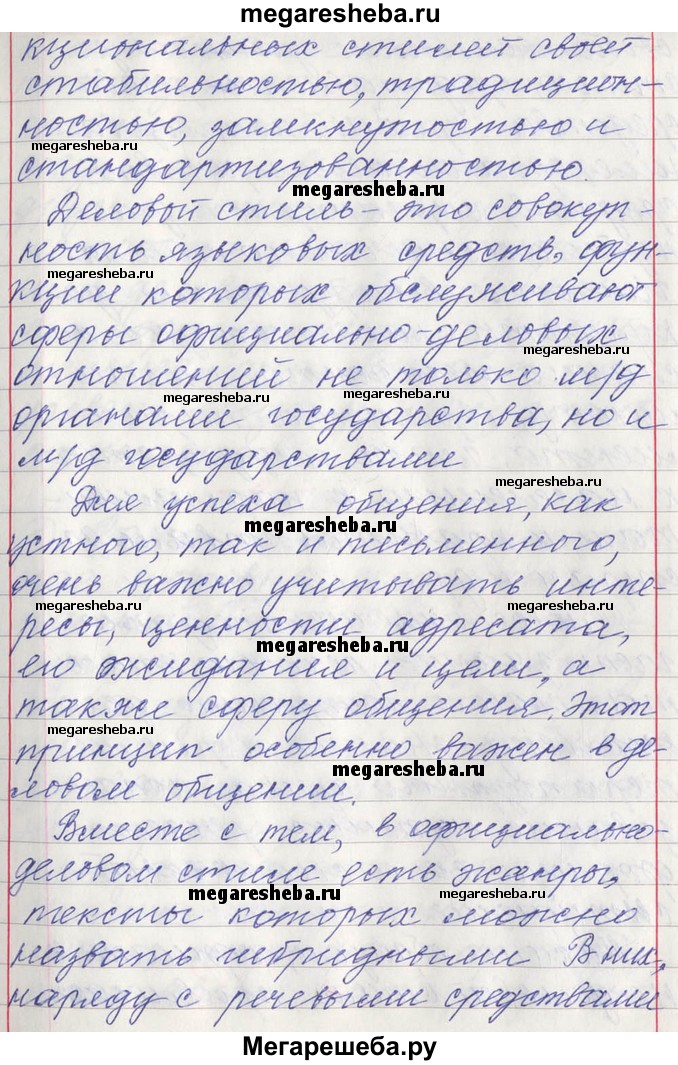 megaresheba.ru
кциональных стилей своей
стабильностью, традицион-
ностью, замкнутостью и
megaresheba.ru
стандартизованностью.
megaresheba.ru
Деловой стиль – это совокуп-
ность языковых средств, фун-
megaresheba.ru
megaresheba.ru
кции которых обслуживают
сферы официально-деловых
megaresheba.ru
отношений не только м/д
megaresheba.ru
megaresheba.ru
органами государства, но и
м/д государствами
Для успеха общения, как
megaresheba.ru
устного, так и письменного,
очень важно учитывать инте-
megaresheba.ru
megaresheba.ru
ресы, ценности адресата,
megaresheba.ru
его ожидание и цели, а
также сферу общения. Этот
megaresheba.ru
принцип особенно важен в де-
megaresheba.ru
ловом общении.
Вместе с тем, в официально-
деловом стиле есть жанры,
megaresheba.ru
megaresheba.ru
тексты которых можно
назвать гибридными В них,
наряду с речевыми средствами
Мегарешеба.ру